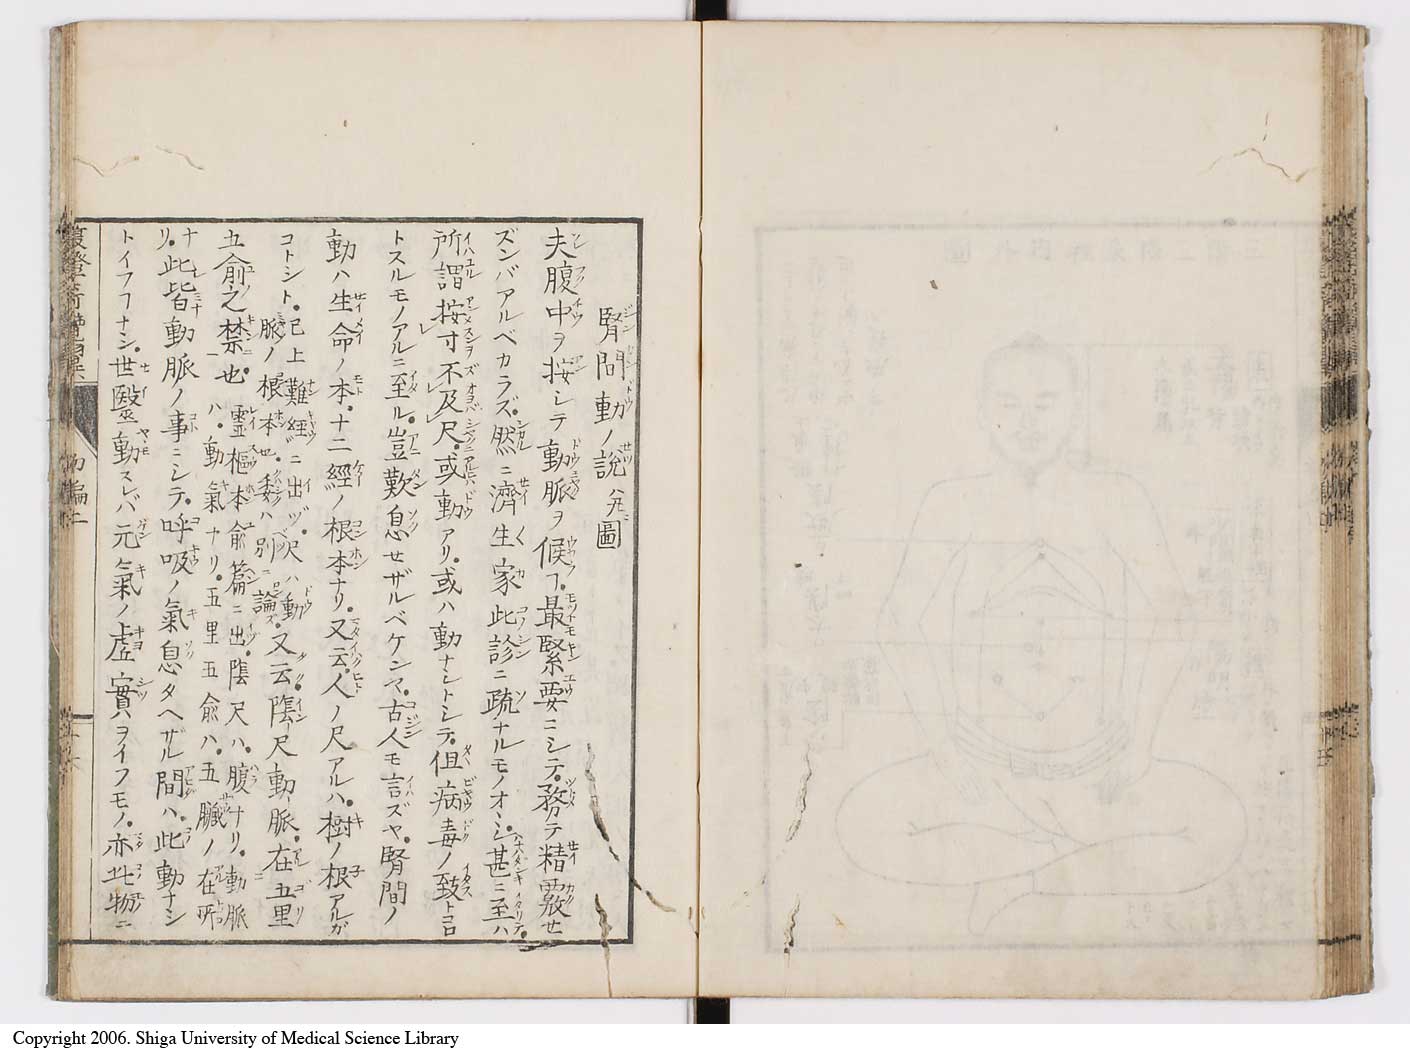 腎間動ノ說 圖
夫腹中ヲ按シテ動脈ヲ候フ。最緊要ニシテ。務テ精覈セ
ズンバアルベカラズ。然ニ濟生家此診ニ疏ナルモノオヽシ。甚ニ至ハ
所謂按寸不及尺。或動アリ。或ハ動ナシトシテ。但病毒ノ致トコロ
トスルモノアルニ至ル。豈歎息セザルベケンヤ。古人モ言ズヤ。腎間ノ
動ハ生命ノ本。十二經ノ根本ナリ。又云。人ノ尺アルハ。樹ノ根アルガ
コトシト。已上難經ニ出ヅ。尺ハ動脈ノ根本也。委ハ別ニ論ズ。又云。陰尺動脈。在五里
五俞之禁也。靈樞本俞篇ニ出。陰尺ハ。腹ナリ。動脈ハ。動氣ナリ。五里五俞ハ。五臟ノ在所
ナリ。此皆動脈ノ事ニシテ。呼吸ノ氣息タヘザル間ハ。此動ナシ
トイフフナシ。世醫動スレバ元氣ノ虛實ヲイフモノ。亦此物ニ
初編上
Copyright 2006. Shiga University of Medical Science Library